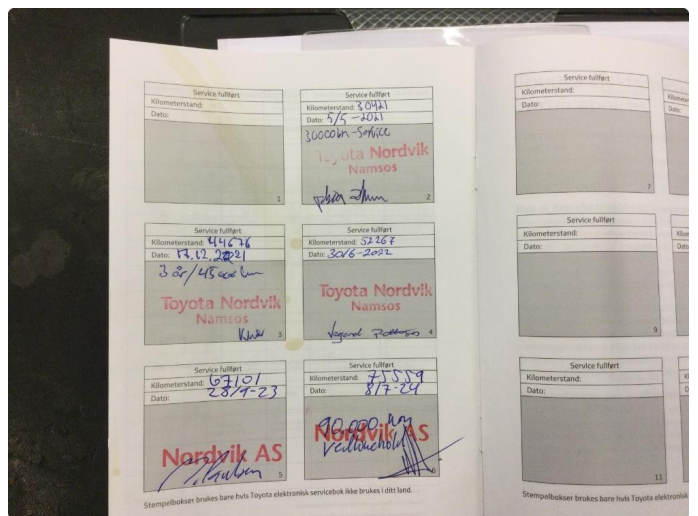 Service fullført
Kilometerstand:
Dato:
1
Service fullført
Kilometerstand: 30921
Dato: 5/5-2021
30000km-Service
Toyota Nordvik
Namsos
2
Service fullført
Kilometerstand: 44676
Dato: 17.12.2021
3 år/45000 km
Toyota Nordvik
Namsos
3
Service fullført
Kilometerstand: 52267
Dato: 30/6-2022
Toyota Nordvik
Namsos
Vegard
4
Service fullført
Kilometerstand: 67101
Dato: 28/9-23
Nordvik AS
5
Service fullført
Kilometerstand: 75559
Dato: 8/7-24
90.000 km
vedlikehold
Nordvik AS
6
Stempelbokser brukes bare hvis Toyota elektronisk servicebok ikke brukes i ditt land.
Service fullført
Kilometerstand:
Dato:
7
Service fullført
Kilometerstand:
Dato:
9
Service fullført
Kilometerstand:
Dato:
11
Stempelbokser brukes bare hvis Toyota elektronisk